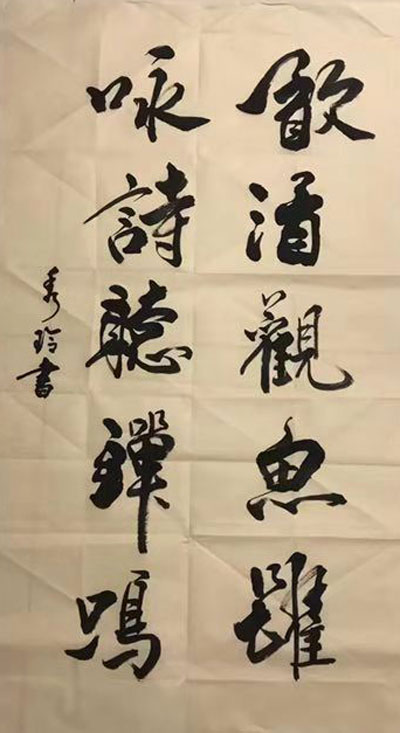 飲酒觀魚躍
咏詩聽蟬鳴
秀玲書